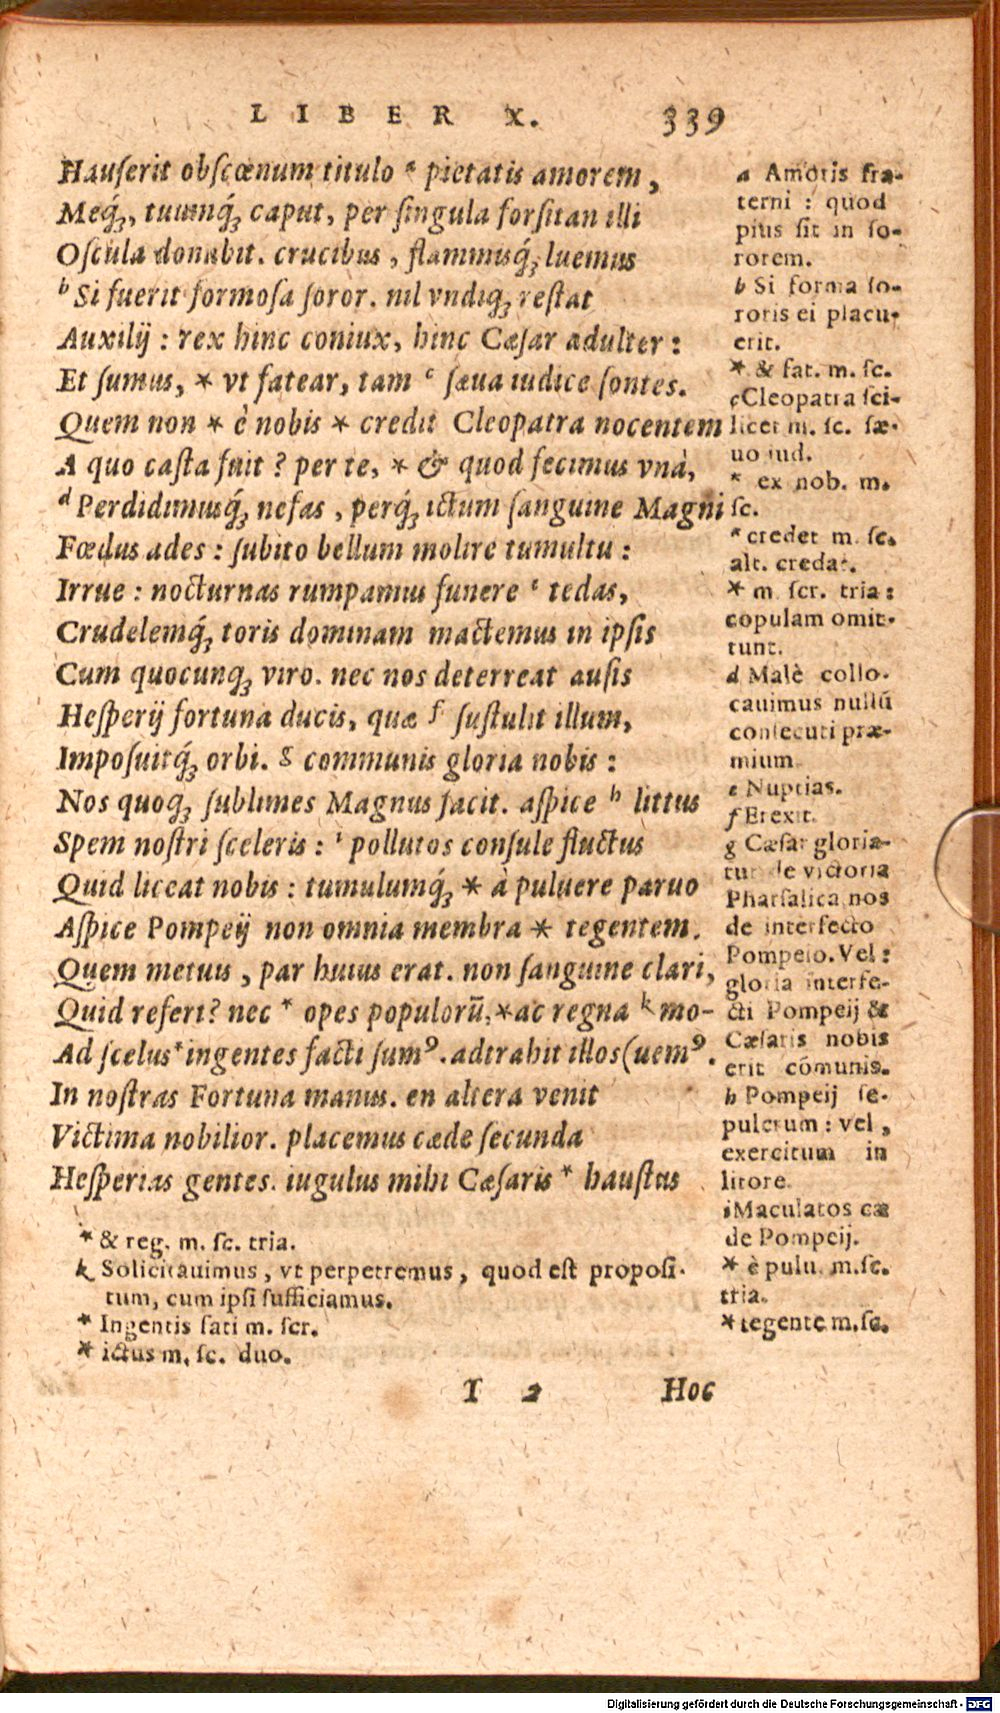 LIBER X. 339
Hauſerit obſcœnum titulo ᵃ pietatis amorem,
Meq́ꝫ, tuumq́ꝫ caput, per ſingula forſitan illi
Oſcula donabit. crucibus, flammisq́ꝫ luemus
ᵇ Si fuerit formoſa ſoror. nil vndiqꝫ reſtat
Auxilij : rex hinc coniux, hinc Cæſar adulter :
Et ſumus, * vt fatear, tam ᶜ ſæua iudice ſontes.
Quem non * è nobis * credit Cleopatra nocentem
A quo caſta fuit ? per te, * & quod fecimus vnà,
ᵈ Perdidimusq́ꝫ nefas, perq́ꝫ ictum ſanguine Magni
Fœdus ades : ſubito bellum molire tumultu :
Irrue : nocturnas rumpamus funere ᵉ tedas,
Crudelemq́ꝫ toris dominam mactemus in ipſis
Cum quocunqꝫ viro. nec nos deterreat auſis
Heſperij fortuna ducis, quæ ᶠ ſuſtulit illum,
Impoſuitq́ꝫ orbi. ᵍ communis gloria nobis :
Nos quoqꝫ ſublimes Magnus facit. aſpice ʰ littus
Spem noſtri ſceleris : ⁱ pollutos conſule fluctus
Quid liceat nobis : tumulumq́ꝫ * à puluere paruo
Aſpice Pompeij non omnia membra * tegentem.
Quem metuis, par huius erat. non ſanguine clari,
Quid refert? nec * opes populorū, *ac regna ᵏ mo-
Ad ſcelus*ingentes facti ſumꝰ. adtrahit illos(uemꝰ.
In noſtras Fortuna manus. en altera venit
Victima nobilior. placemus cæde ſecunda
Heſperias gentes. iugulus mihi Cæſaris * hauſtus
* & reg. m. ſc. tria.
k Solicitauimus, vt perpetremus, quod eſt propoſi-
tum, cum ipſi ſufficiamus.
* Ingentis fati m. ſcr.
* ictus m. ſc. duo.
a Amoris fra-
terni : quod
pius ſit in ſo-
rorem.
b Si forma ſo-
roris ei placu-
erit.
* & fat. m. ſc.
c Cleopatra ſci-
licet m. ſc. ſæ-
uo iud.
* ex nob. m.
ſc.
* credet m. ſc.
alt. credat.
* m ſcr. tria :
copulam omit-
tunt.
d Malè collo-
cauimus nullū
conſecuti præ-
mium.
e Nuptias.
f Erexit.
g Cæſar gloria-
tur de victoria
Pharſalica, nos
de interfecto
Pompeio. Vel :
gloria interfe-
cti Pompeij &
Cæſaris nobis
erit cómunis.
h Pompeij ſe-
pulcrum : vel,
exercitum in
litore.
i Maculatos cæ
de Pompeij.
* è pulu. m.ſc.
tria.
* tegente m.ſc.
I 2 Hoc
Digitalisierung gefördert durch die Deutsche Forschungsgemeinschaft - DFG